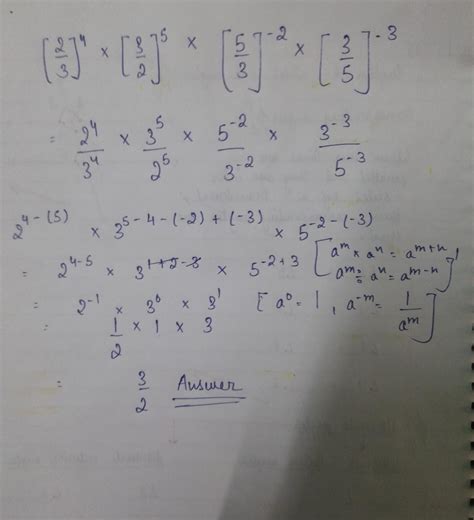 [2/3]^4 × [3/2]^5 × [5/3]^-2 × [3/5]^-3
= 2^4/3^4 × 3^5/2^5 × 5^-2/3^-2 × 3^-3/5^-3
2^4-(5) × 3^5-4-(-2)+(-3) × 5^-2-(-3)
= 2^4-5 × 3^1+2-3 × 5^-2+3 [a^m × a^n = a^m+n, a^m ÷ a^n = a^m-n]
= 2^-1 × 3^0 × 3^1 [a^0 = 1, a^-m = 1/a^m]
1/2 × 1 × 3
= 3/2 Answer